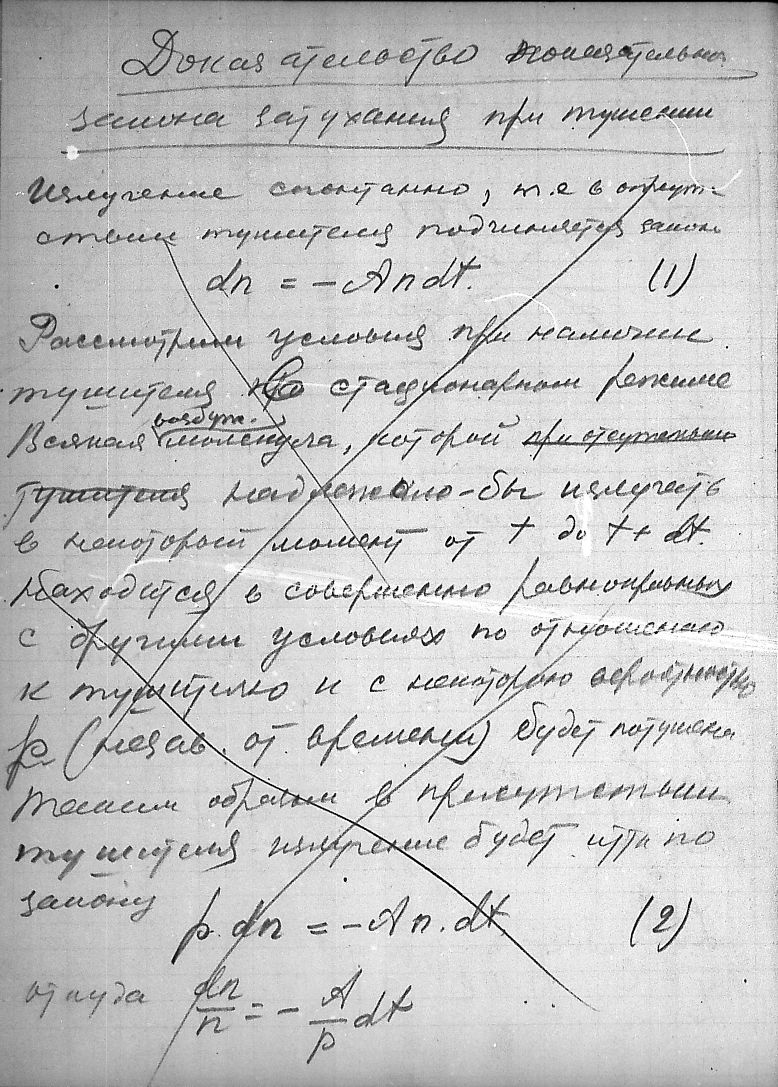 Доказательство показательного
закона затухания при тушении
Излучение спонтанно, т.е в отсут-
ствии тушителя подчиняется закону
dn = - A n dt. (1)
Рассмотрим условия при наличии
тушителя стационарном режиме
Всякая возбужд. молекула, которой при отсутствии
тушителя надлежало-бы излучать
в некоторый момент от t до t + dt.
находится в совершенно равноправных
с другими условиях по отношению
к тушителю и с некоторою вероятностью
p (незав. от времени) будет потушена
таким образом в присутствии
тушителя излучение будет итти по
закону
p. dn = - A n. dt (2)
откуда dn/n = - A/p dt